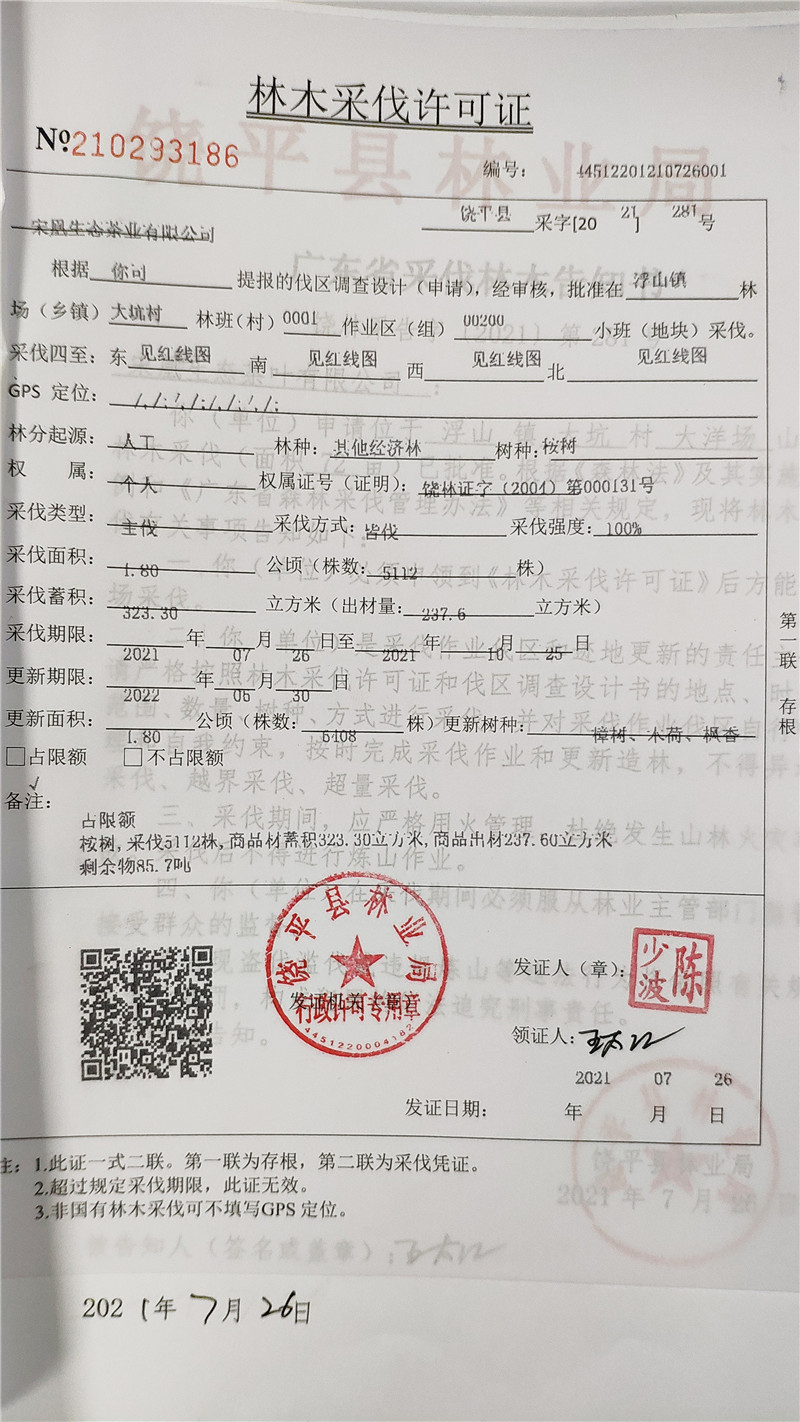 林木采伐许可证
№210293186
编号： 44512201210726001
宋凰生态茶业有限公司
饶平县 采字[20 21 ] 281 号
根据 你司 提报的伐区调查设计（申请），经审核，批准在 浮山镇 林
场（乡镇）大坑村 林班（村）0001 作业区（组） 00200 小班（地块）采伐。
采伐四至：东 见红线图 南 见红线图 西 见红线图 北 见红线图
GPS 定位： /,/;/,/;/,/;/,/;
林分起源： 人工 林种：其他经济林 树种：桉树
权 属： 个人 权属证号（证明）：饶林证字（2004）第000131号
采伐类型： 主伐 采伐方式：皆伐 采伐强度：100%
采伐面积： 1.80 公顷（株数：5112 株）
采伐蓄积： 323.30 立方米（出材量： 237.6 立方米）
采伐期限： 2021 年 07 月 26 日至 2021 年 10 月 25 日
更新期限： 2022 年 06 月 30 日
更新面积： 1.80 公顷（株数： 5108 株）更新树种： 樟树、木荷、枫香
□占限额 □不占限额
√
备注：
占限额
桉树,采伐5112株,商品材蓄积323.30立方米,商品出材237.60立方米
剩余物85.7吨
第一联 存根
饶平县林业局
发证机关（章）
行政许可专用章
4451220004182
发证人（章）：
陈少波
领证人：
2021 07 26
发证日期： 年 月 日
注：1.此证一式二联。第一联为存根，第二联为采伐凭证。
2.超过规定采伐期限，此证无效。
3.非国有林木采伐可不填写GPS 定位。
饶平县林业局
2021 年 7 月 26
被告知人（签名或盖章）：
2021年 7月 26日